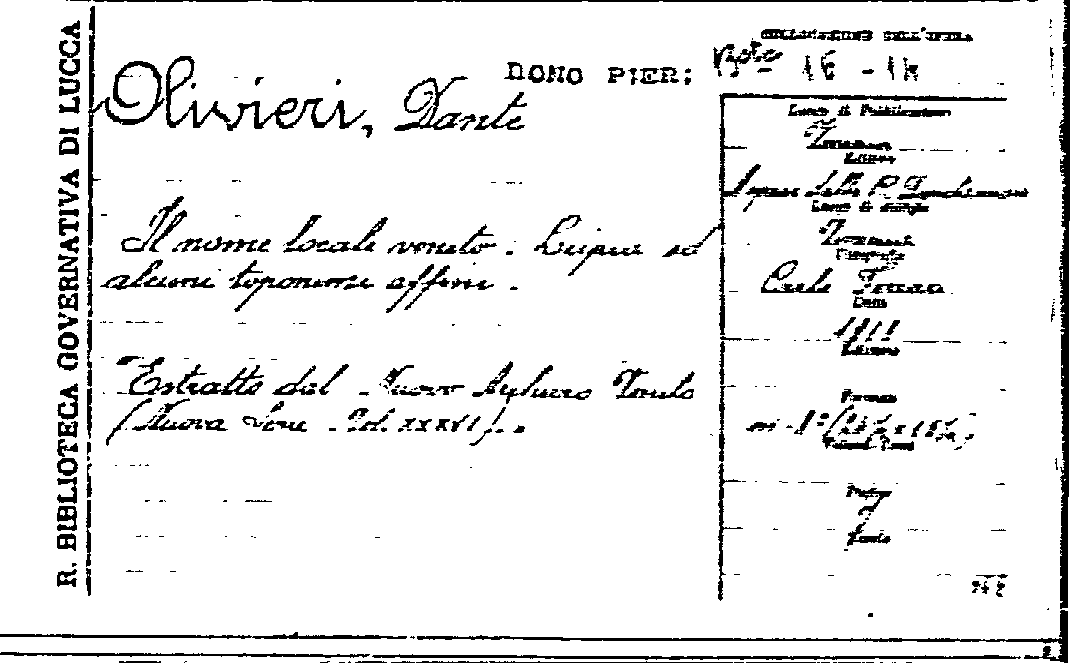 R. BIBLIOTECA GOVERNATIVA DI LUCCA
DONO PIERI
COLLOCAZIONE DELL'OPERA
Bste 16 - 18
Olivieri, Dante
Il nome locale veneto. ed
alcuni toponimi affini.
Estratto dal Nuovo Archivio Veneto
(Nuova Serie - Vol. XXXVI).
Luogo di Pubblicazione
Venezia
Editore
a spese della R. Deputazione
Luogo di stampa
Venezia
Tipografia
Carlo Ferrari
Data
Edizione
Formato
in - 8°
Volumi Tomi
Pagine
7
Tavole